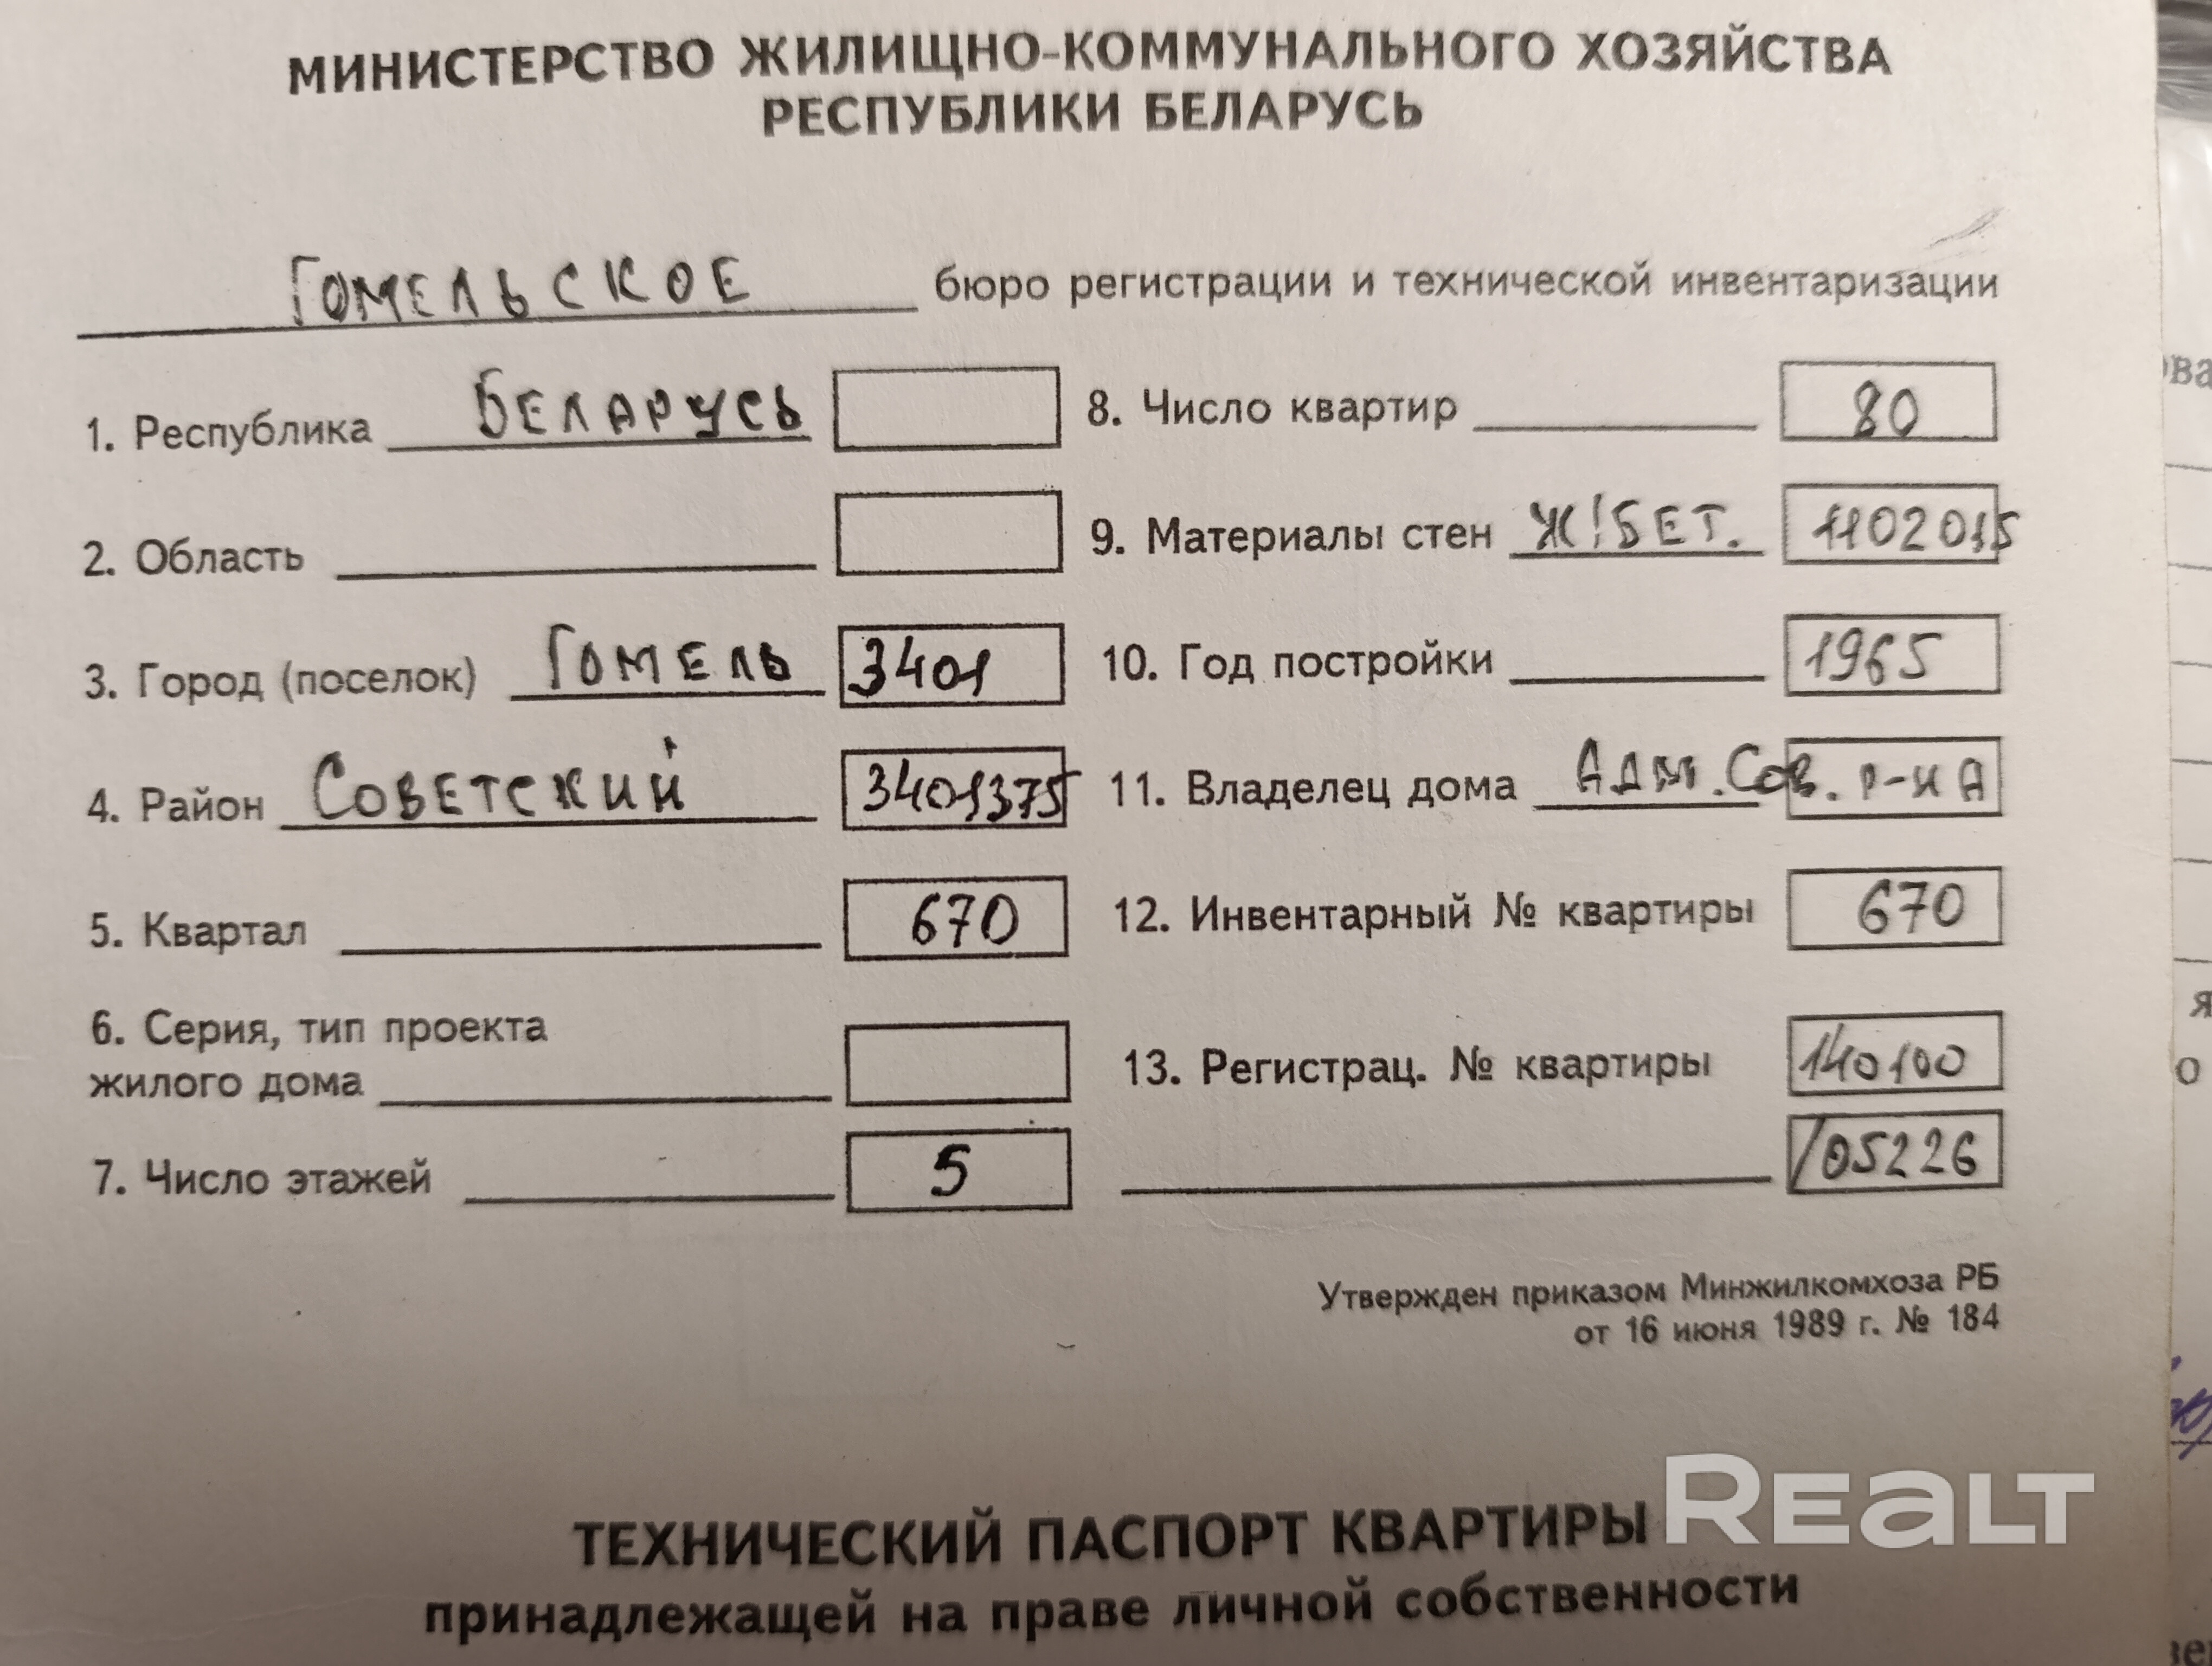 МИНИСТЕРСТВО ЖИЛИЩНО-КОММУНАЛЬНОГО ХОЗЯЙСТВА
РЕСПУБЛИКИ БЕЛАРУСЬ
ГОМЕЛЬСКОЕ бюро регистрации и технической инвентаризации
1. Республика БЕЛАРУСЬ
2. Область
3. Город (поселок) ГОМЕЛЬ 3401
4. Район СОВЕТСКИЙ 3401375
5. Квартал 670
6. Серия, тип проекта
жилого дома
7. Число этажей 5
8. Число квартир 80
9. Материалы стен Ж!БЕТ. 1102015
10. Год постройки 1965
11. Владелец дома АДМ. СОВ. Р-НА
12. Инвентарный № квартиры 670
13. Регистрац. № квартиры 140100
/05226
Утвержден приказом Минжилкомхоза РБ
от 16 июня 1989 г. № 184
ТЕХНИЧЕСКИЙ ПАСПОРТ КВАРТИРЫ
принадлежащей на праве личной собственности
REALT